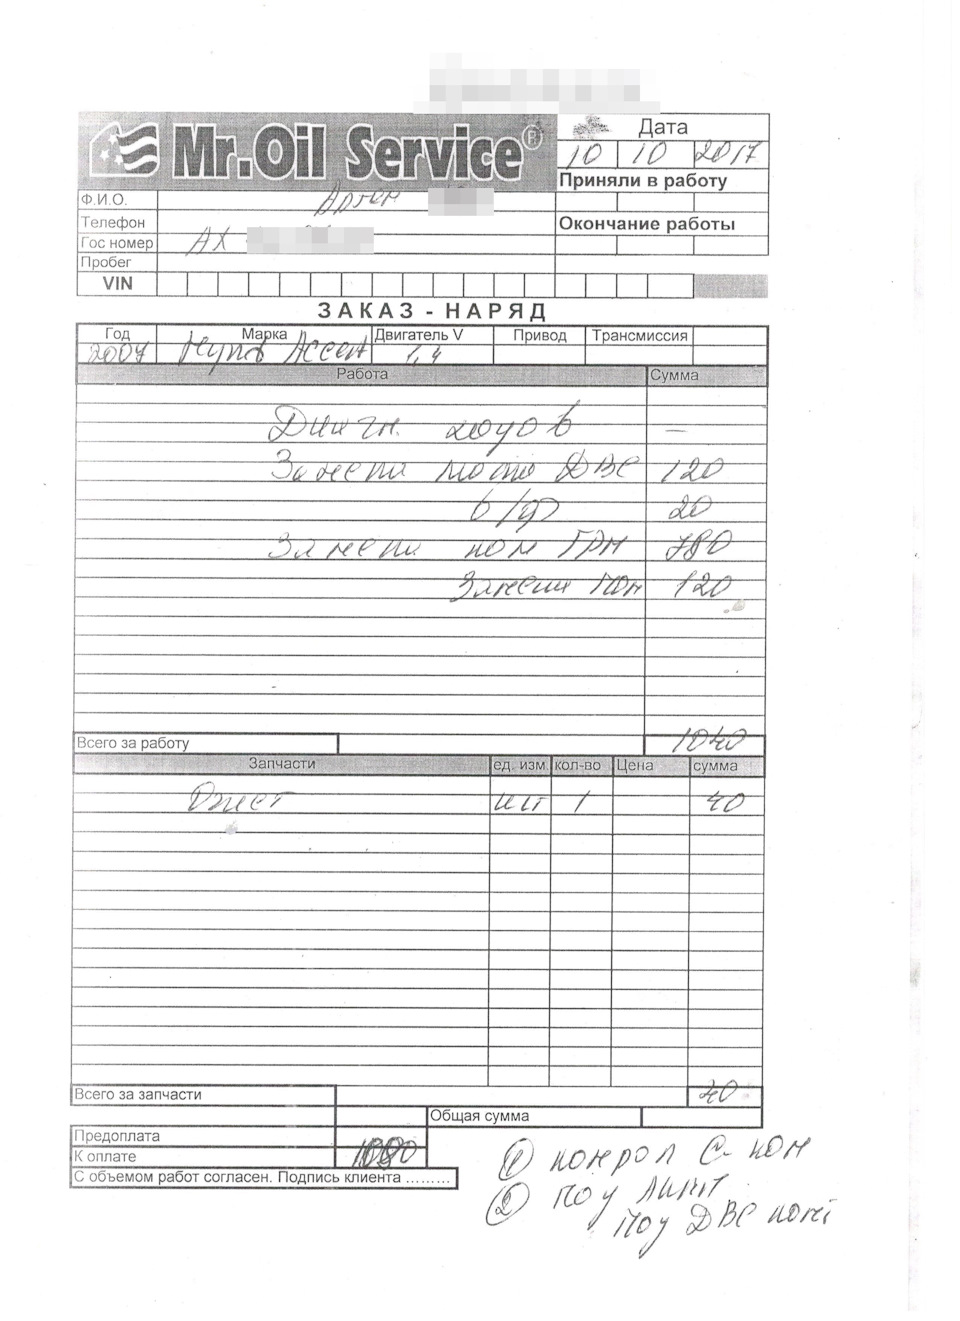 Mr.Oil Service®
Дата
10 10 2017
Приняли в работу
Ф.И.О. Артем
Телефон
Окончание работы
Гос номер АХ
Пробег
VIN
ЗАКАЗ - НАРЯД
Год Марка Двигатель V Привод Трансмиссия
2007 Акцент 1,4
Работа Сумма
Диагн. ходов —
Замена масла ДВС 120
в/ф 20
Замена ком ГРМ 780
Замена 120
Всего за работу 1040
Запчасти ед. изм. кол-во Цена сумма
шт 1 40
Всего за запчасти 40
Общая сумма
Предоплата
К оплате
С объемом работ согласен. Подпись клиента .........
① С-
②
ДВС